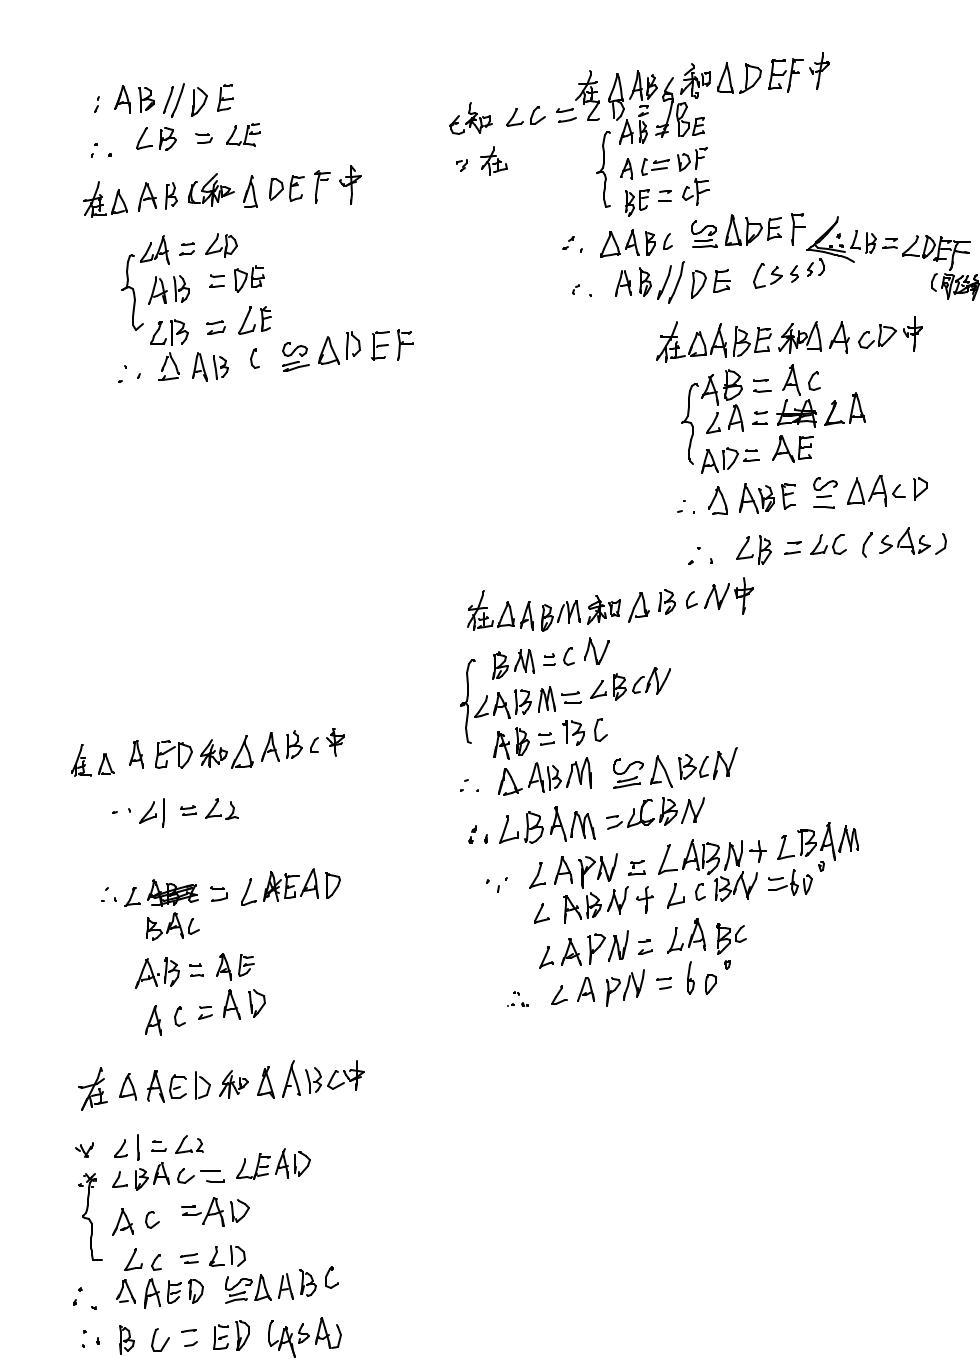 ∵AB//DE
∴ ∠B = ∠E
在△ABC和△DEF中
∠A = ∠D
AB = DE
∠B = ∠E
∴ △ABC ≌ △DEF
在△ABC和△DEF中
已知 ∠C = ∠D = 90
∵在
AB = DE
AC = DF
BE = CF
∴ △ABC ≌ △DEF ∴∠B = ∠DEF
∴ AB//DE (SSS)
在△ABE和△ACD中
AB = AC
∠A = ∠A
AD = AE
∴ △ABE ≌ △ACD
∴ ∠B = ∠C (SAS)
在△ABM和△BCN中
BM = CN
∠ABM = ∠BCN
AB = BC
∴ △ABM ≌ △BCN
∴ ∠BAM = ∠CBN
∵ ∠APN = ∠ABN + ∠BAM
∠ABN + ∠CBN = 60°
∠APN = ∠ABC
∴ ∠APN = 60°
在△AED和△ABC中
∵ ∠1 = ∠2
∴ ∠ = ∠AEAD
BAC
AB = AE
AC = AD
在△AED和△ABC中
∵ ∠1 = ∠2
∴ ∠BAC = ∠EAD
AC = AD
∠C = ∠D
∴ △AED ≌ △ABC
∴ BC = ED (ASA)